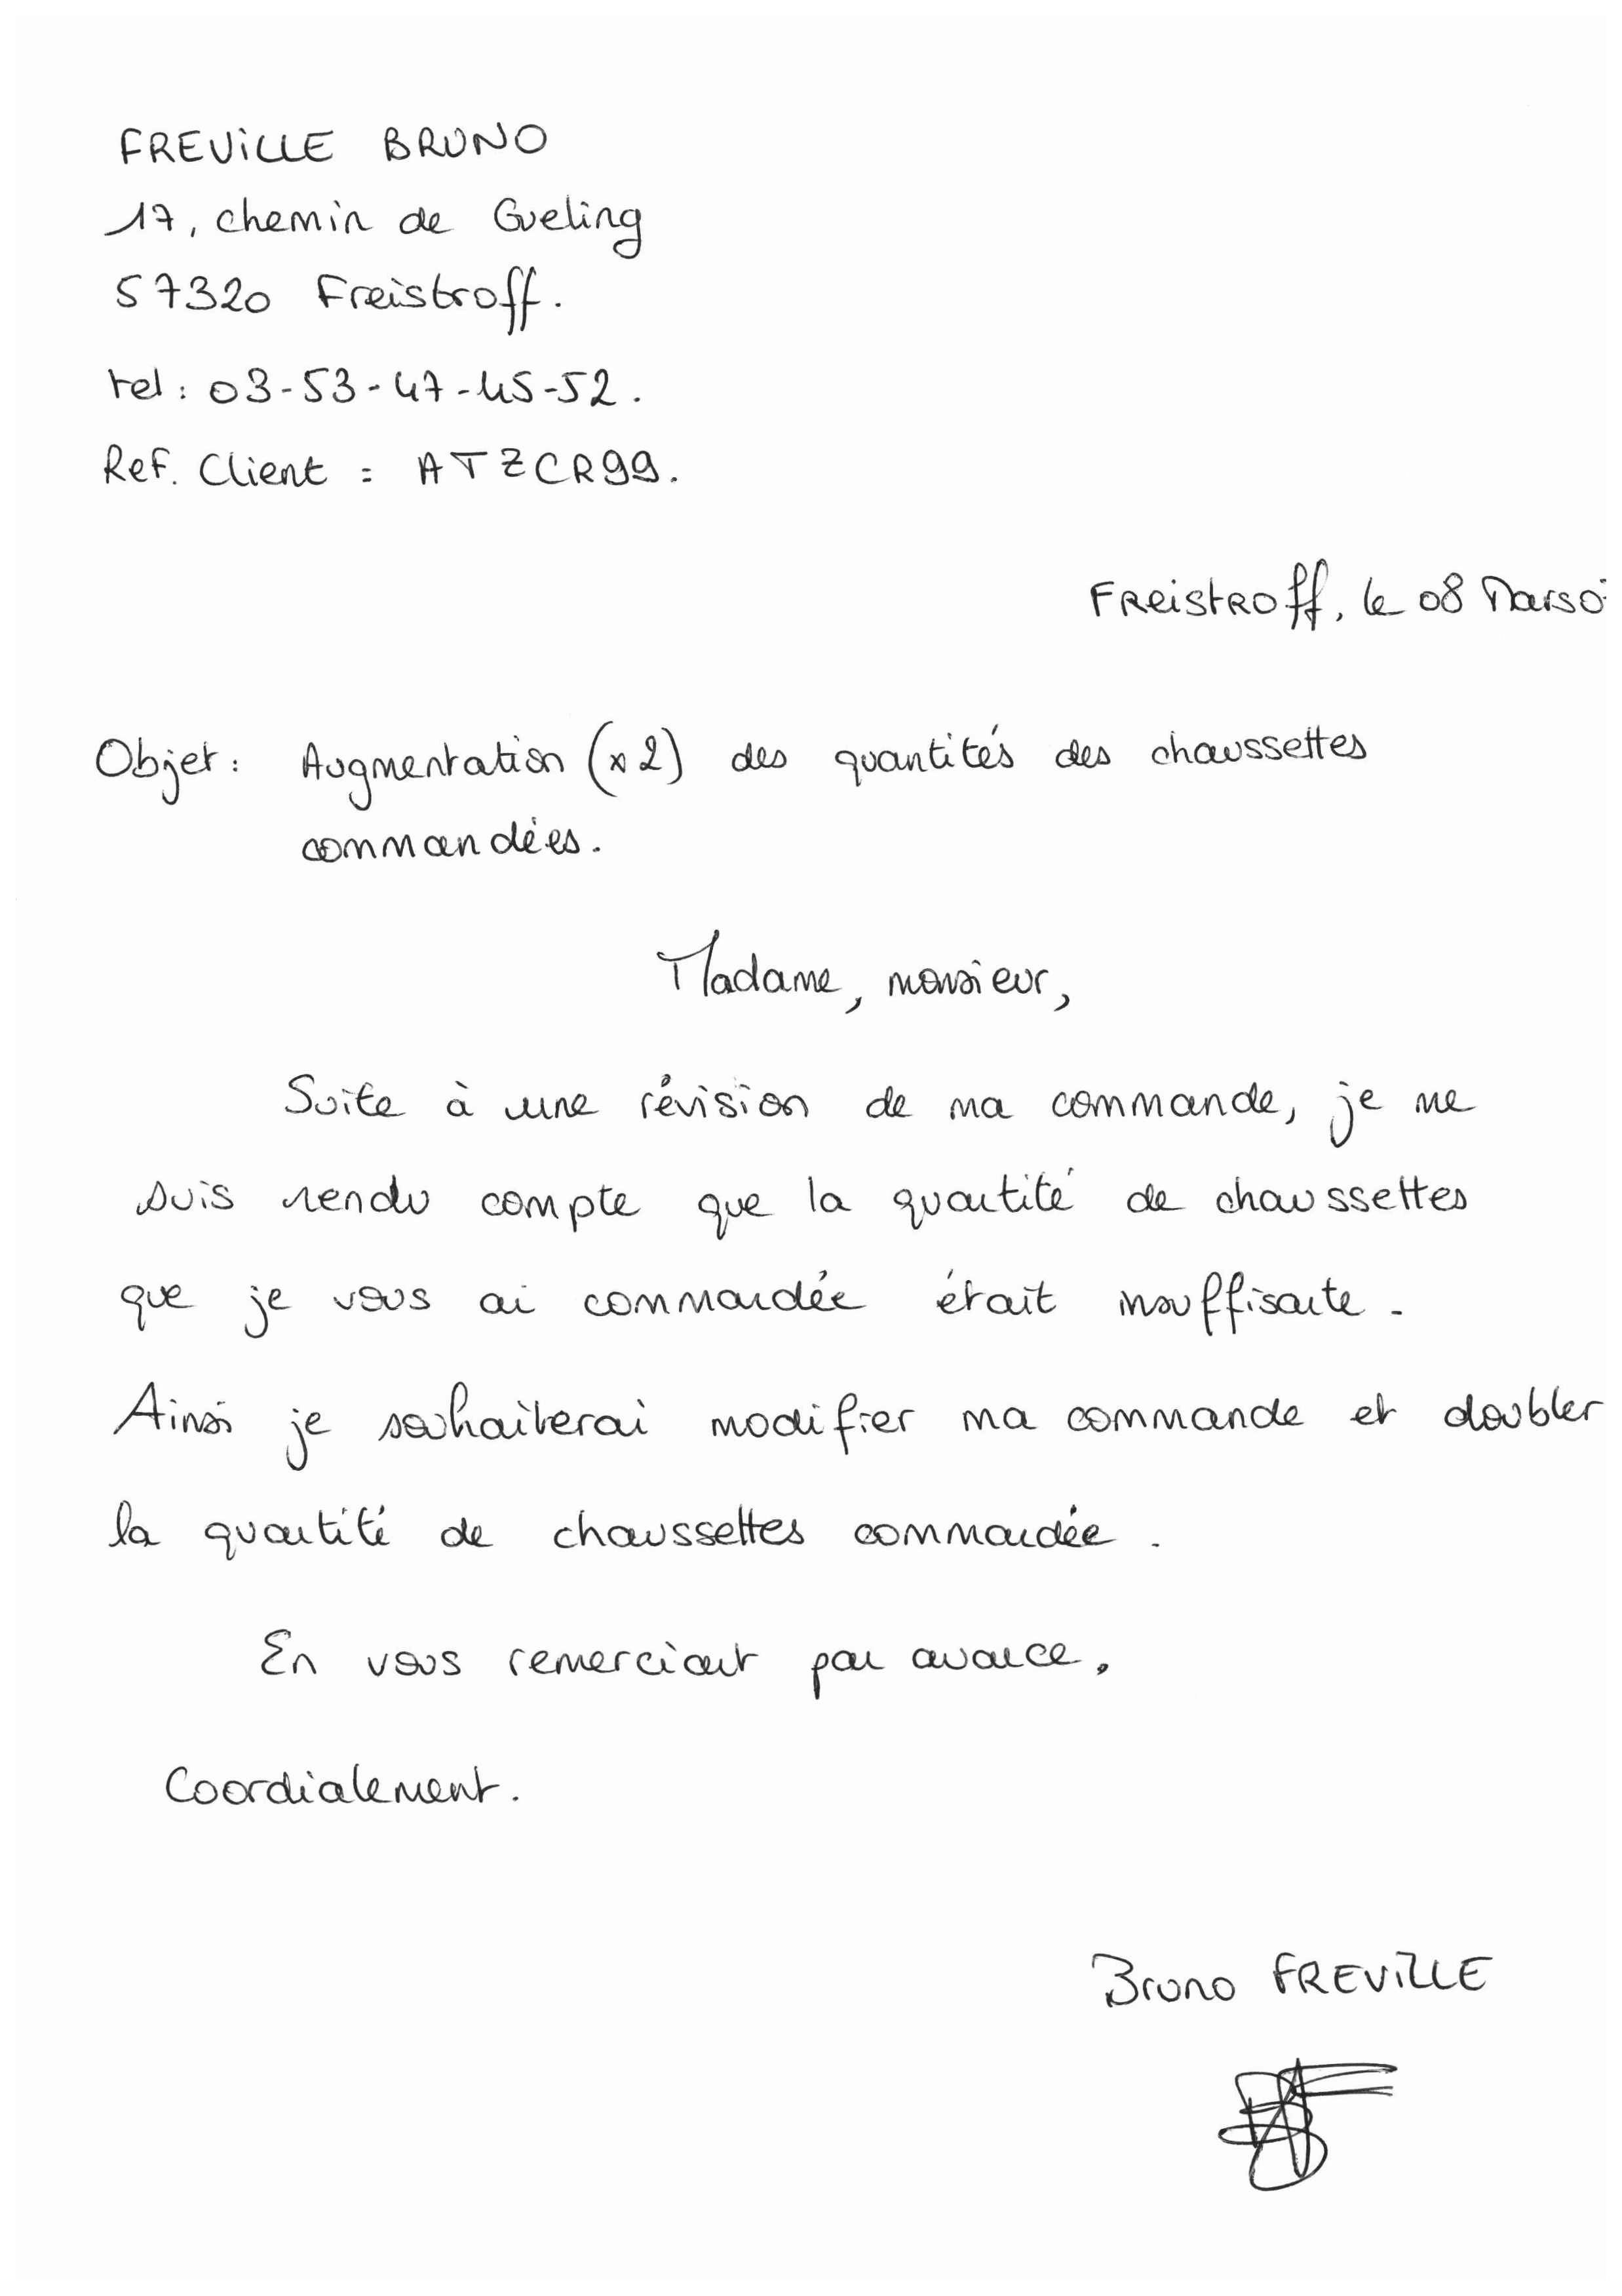 FREVILLE BRUNO
17, chemin de Gueling
57320 Freistroff.
tel : 03-53-47-45-52.
Ref. Client : ATZCR99.
Freistroff, le 08 Mars
Objet : Augmentation (x2) des quantités des chaussettes
commandées.
Madame, monsieur,
Suite à une révision de ma commande, je me
suis rendu compte que la quantité de chaussettes
que je vous ai commandée était insuffisante.
Ainsi je souhaiterai modifier ma commande et doubler
la quantité de chaussettes commandée.
En vous remerciant par avance,
Coordialement.
Bruno FREVILLE